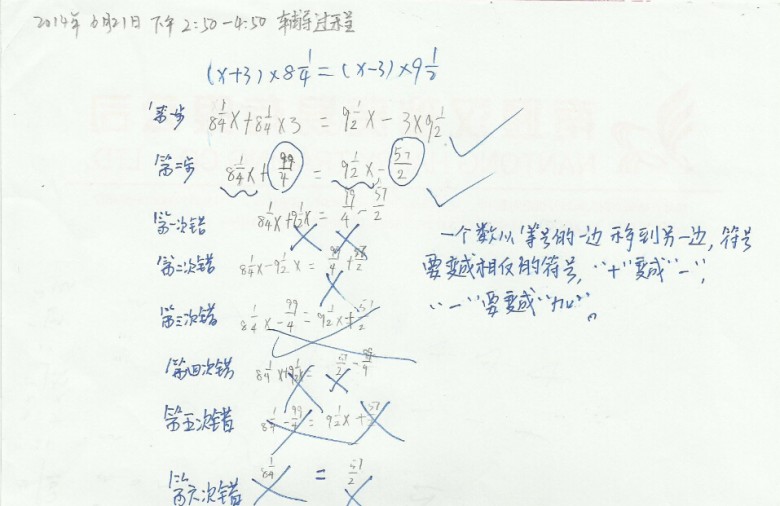 2014年6月21日 下午2:50-4:50 辅导过程
(x+3)×8 1/4=(x-3)×9 1/2
第一步 8 1/4 x+8 1/4×3 = 9 1/2 x-3×9 1/2
第二步 8 1/4 x+99/4 = 9 1/2 x-57/2
第一次错 8 1/4 x+9 1/2 x= 99/4-57/2
第二次错 8 1/4 x-9 1/2 x= 99/4+57/2
第三次错 8 1/4 x-99/4=9 1/2 x+57/2
第四次错 8 1/4 x+9 1/2 x= 57/2-99/4
第五次错 8 1/4-99/4=9 1/2 x+57/2
第六次错 8 1/4 = 57/2
一个数从等号的一边移到另一边,符号
要变成相反的符号,"+"变成"-",
"-"要变成"加"。